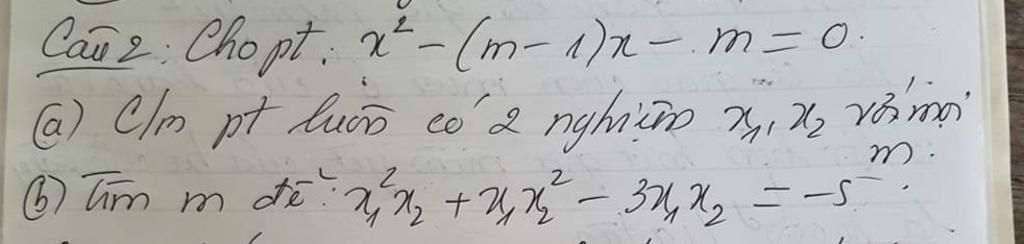 Câu 2: Cho pt: x² - (m - 1)x - m = 0.
(a) C/m pt luôn có 2 nghiệm x₁, x₂ với mọi m.
(b) Tìm m để: x₁²x₂ + x₁x₂² - 3x₁x₂ = -5.